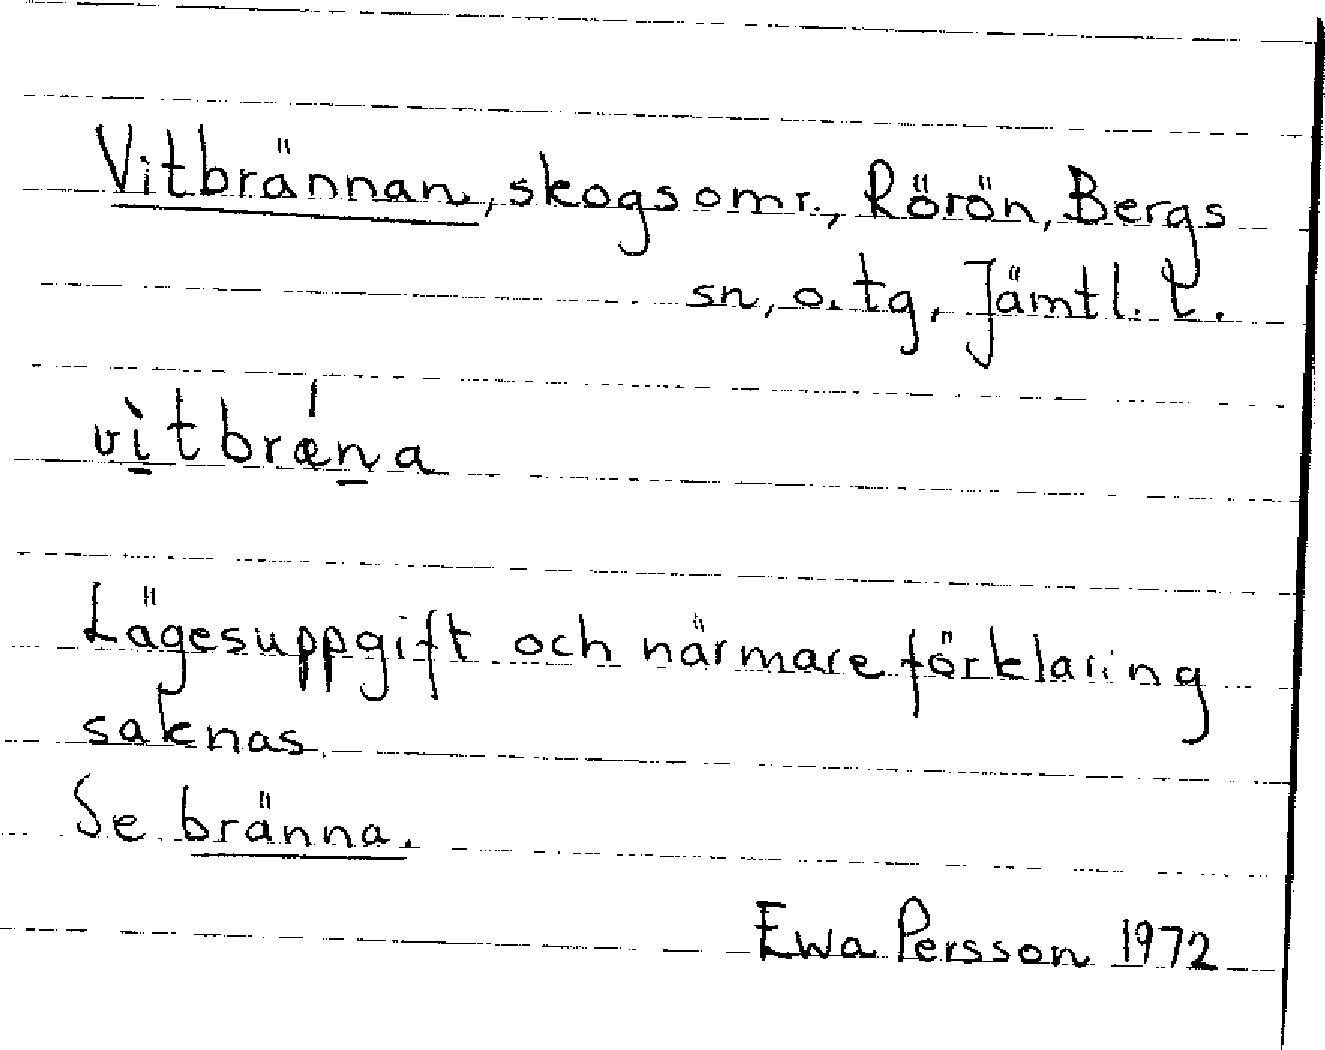 Vitbrännan, skogsomr., Rörön, Bergs
sn, o. tg, Jämtl. l.
vì̲tbrǽn̲a
Lägesuppgift och närmare förklaring
saknas.
Se bränna.
Ewa Persson 1972